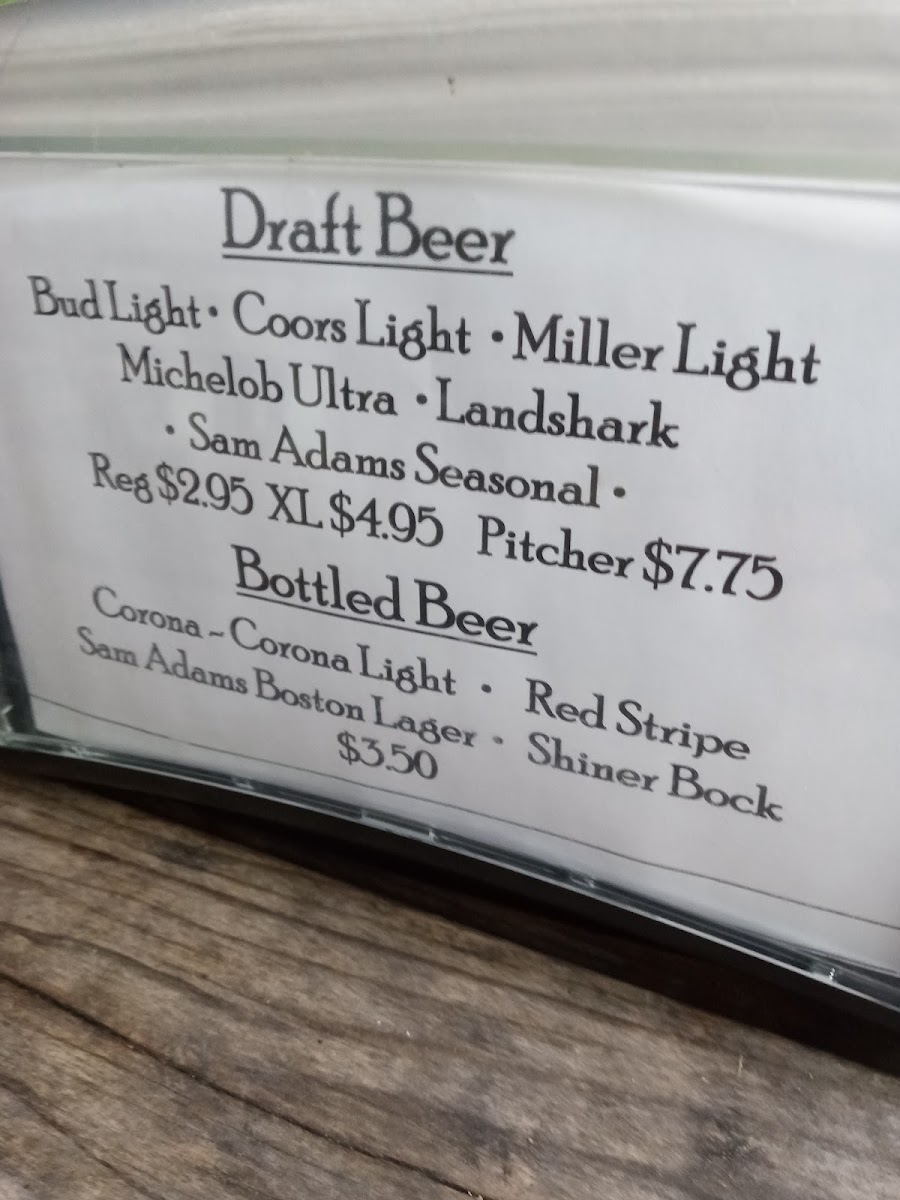 Draft Beer
Bud Light • Coors Light • Miller Light
Michelob Ultra • Landshark
• Sam Adams Seasonal •
Reg $2.95 XL $4.95 Pitcher $7.75
Bottled Beer
Corona ~ Corona Light • Red Stripe
Sam Adams Boston Lager • Shiner Bock
$3.50